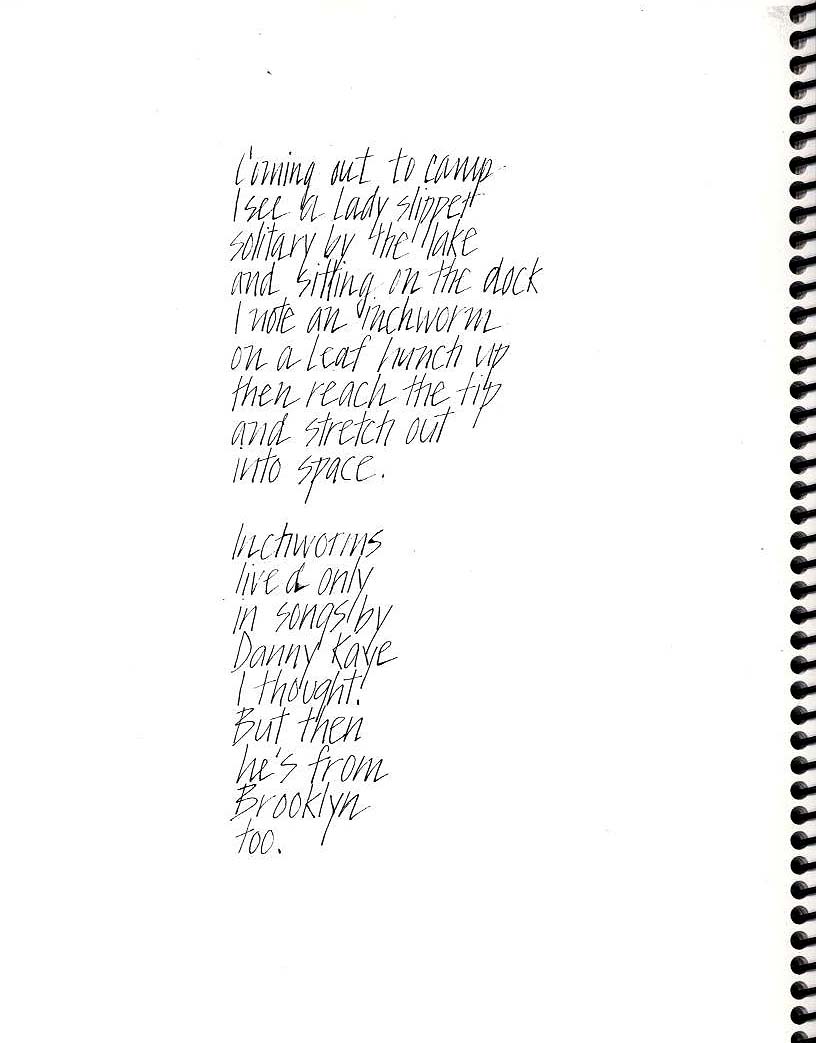 Coming out to camp
I see a Lady slipper
solitary by the lake
and sitting on the dock
I note an inchworm
on a leaf hunch up
then reach the tip
and stretch out
into space.

Inchworms
lived only
in songs by
Danny Kaye
I thought.
But then
he's from
Brooklyn
too.